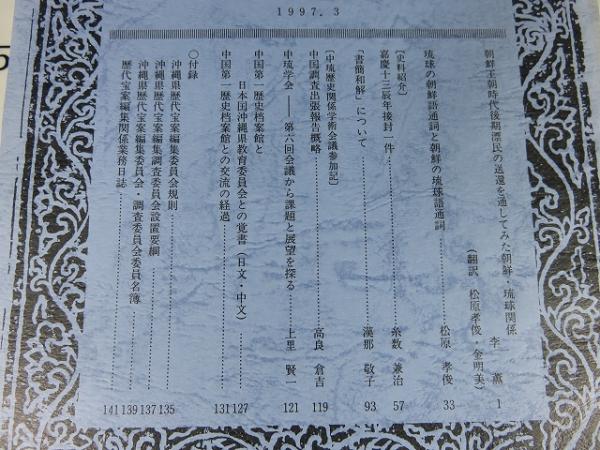 1997.3
朝鮮王朝時代後期漂民の送還を通してみた朝鮮・琉球関係 李 薫 1
(翻訳 松原孝俊・金明美)
琉球の朝鮮語通詞と朝鮮の琉球語通詞 松原 孝俊 33
〔史料紹介〕
嘉慶十三辰年接封一件 糸数 兼治 57
「書簡和解」について 漢那 敬子 93
〔中琉歴史関係学術会議参加記〕
中国調査出張報告概略 高良 倉吉 119
中琉学会――第六回会議から課題と展望を探る 上里 賢一 121
中国第一歴史档案館と
日本国沖縄県教育委員会との覚書(日文・中文) 127
中国第一歴史档案館との交流の経過 131
○付録
沖縄県歴代宝案編集委員会規則 135
沖縄県歴代宝案編集調査委員会設置要綱 137
沖縄県歴代宝案編集委員会・調査委員会委員名簿 139
歴代宝案編集関係業務日誌 141